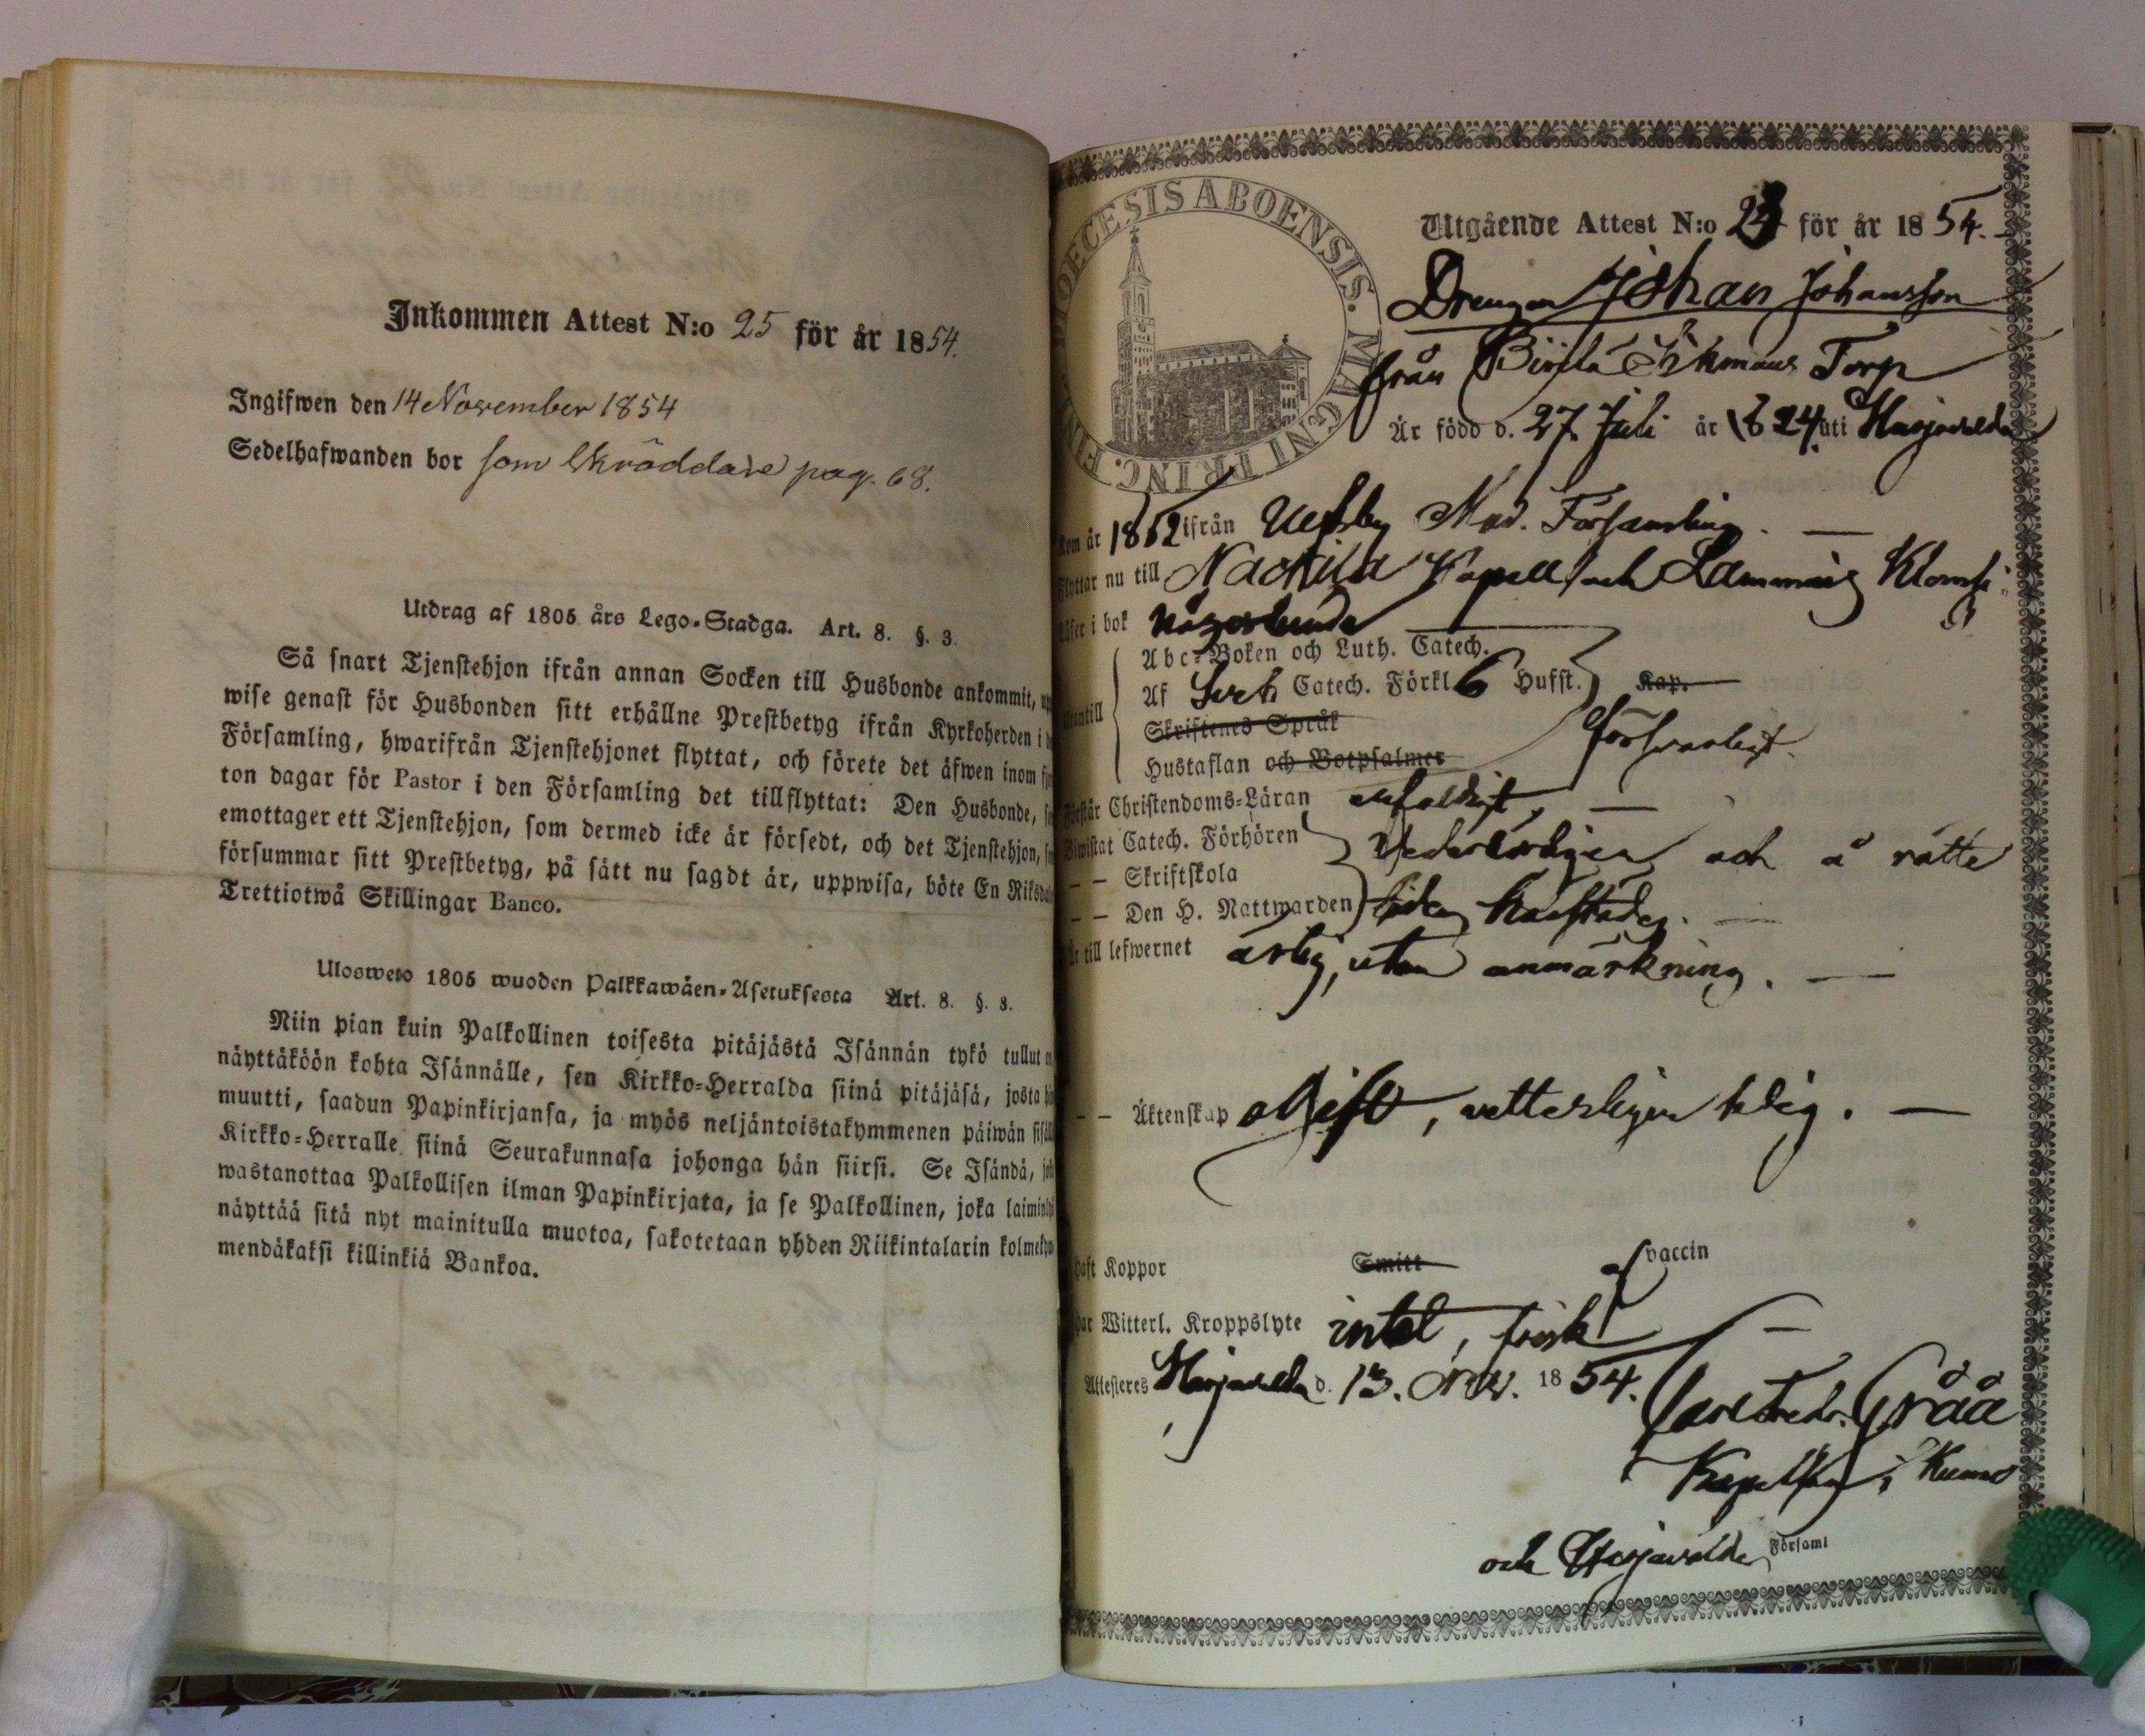 Inkommen Attest N:o 25 för år 1854.
Ingifwen den 14 November 1854
Sedelhafwanden bor som Skräddare pag. 68.
Utdrag af 1805 års Lego-Stadga. Art. 8. §. 3.
Så snart Tjenstehjon ifrån annan Socken till Husbonde ankommit,
wise genast för Husbonden sitt erhållne Prestbetyg ifrån Kyrkoherden i
Församling, hwarifrån Tjenstehjonet flyttat, och förete det äfwen inom
ton dagar för Pastor i den Församling det tillflyttat: Den Husbonde,
emottager ett Tjenstehjon, som dermed icke är försedt, och det Tjenstehjon,
försummar sitt Prestbetyg, på sätt nu sagdt är, uppwisa, böte En
Trettiotwå Skillingar Banco.
Uloswето 1805 wuoden Palkkawäen-Asetuksesta Art. 8. §. 3.
Niin pian kuin Palkollinen toisesta pitäjästä Isännän tykö tullut
näyttäköön kohta Isännälle, sen Kirkko-Herralda siinä pitäjäsä, josta
muutti, saadun Papinkirjansa, ja myös neljäntoistakymmenen päiwän
Kirkko-Herralle siinä Seurakunnasa johonga hän siirsi. Se Isändä,
wastanottaa Palkollisen ilman Papinkirjata, ja se Palkollinen, joka
näyttää sitä nyt mainitulla muotoa, sakotetaan yhden Riikintalarin
mendäkaksi killinkiä Bankoa.
DIOECESIS ABOENSIS. MAGNI PRINC. FINL.
Utgående Attest N:o för år 1854.
Drengen Johan Johansson
från Torp
Är född d. 27 Juli år 1824 uti Harjavalda
Kom år 1852 ifrån Ulfsby Mod. Församling.
Flyttar nu till Nackila Kapell och
Läser i bok någorlunda
Abc-Boken och Luth. Catech.
Af Catech. Förkl. 6 Hufst. Kap.
Utantill
Skriftenes Språk
försvarligt.
Hustaflan och Botpsalmer
Förstår Christendoms-Läran enfaldigt,
Biwistat Catech. Förhören
Vederbörligen och å rätte
— — Skriftskola
— — Den H. Nattwarden
tider
Är till lefwernet ärlig, utan anmärkning.
— — Äktenskap ogift, vetterligen ledig.
Haft Koppor Smitt af vaccin
Har Witterl. Kroppslyte intet, frisk
Attesteres Harjavalda d. 13. Nov. 1854.
Carl Fredr. Gråå
i Kumo
och Harjavalda Församl